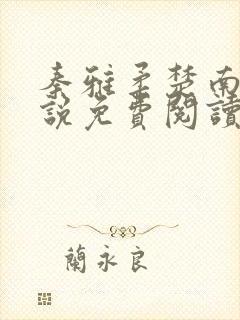 秦雅柔楚南
說免費閱讀
蘭永良